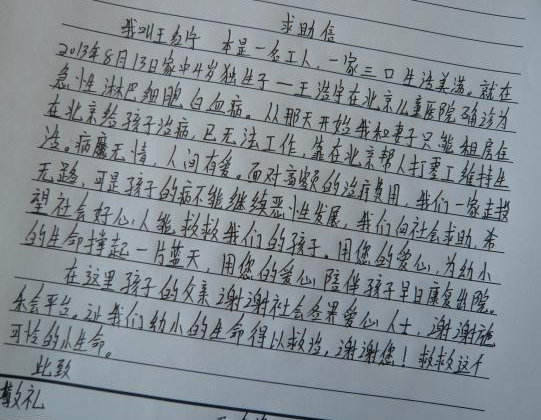 求助信
我叫王 宁 本是一名工人,一家三口生活美满。就在
2013年8月13日家中4岁独生子一王浩宇在北京儿童医院确诊为
急性淋巴细胞白血病。从那天开始我和妻子只能租房住
在北京给孩子治病,已无法工作,靠在北京帮人打零工维持生
活。病魔无情,人间有爱。面对高额的治疗费用,我们一家走投
无路,可是孩子的病不能继续恶性发展,我们向社会求助,希
望社会好心人能救救我们的孩子,用您的爱心,为幼小
的生命撑起一片蓝天,用您的爱心陪伴孩子早日康复出院。
在这里孩子的父亲谢谢社会各界爱心人士,谢谢施
乐会平台。让我们幼小的生命得以救治,谢谢您!救救这个
可怜的小生命。
此致
敬礼